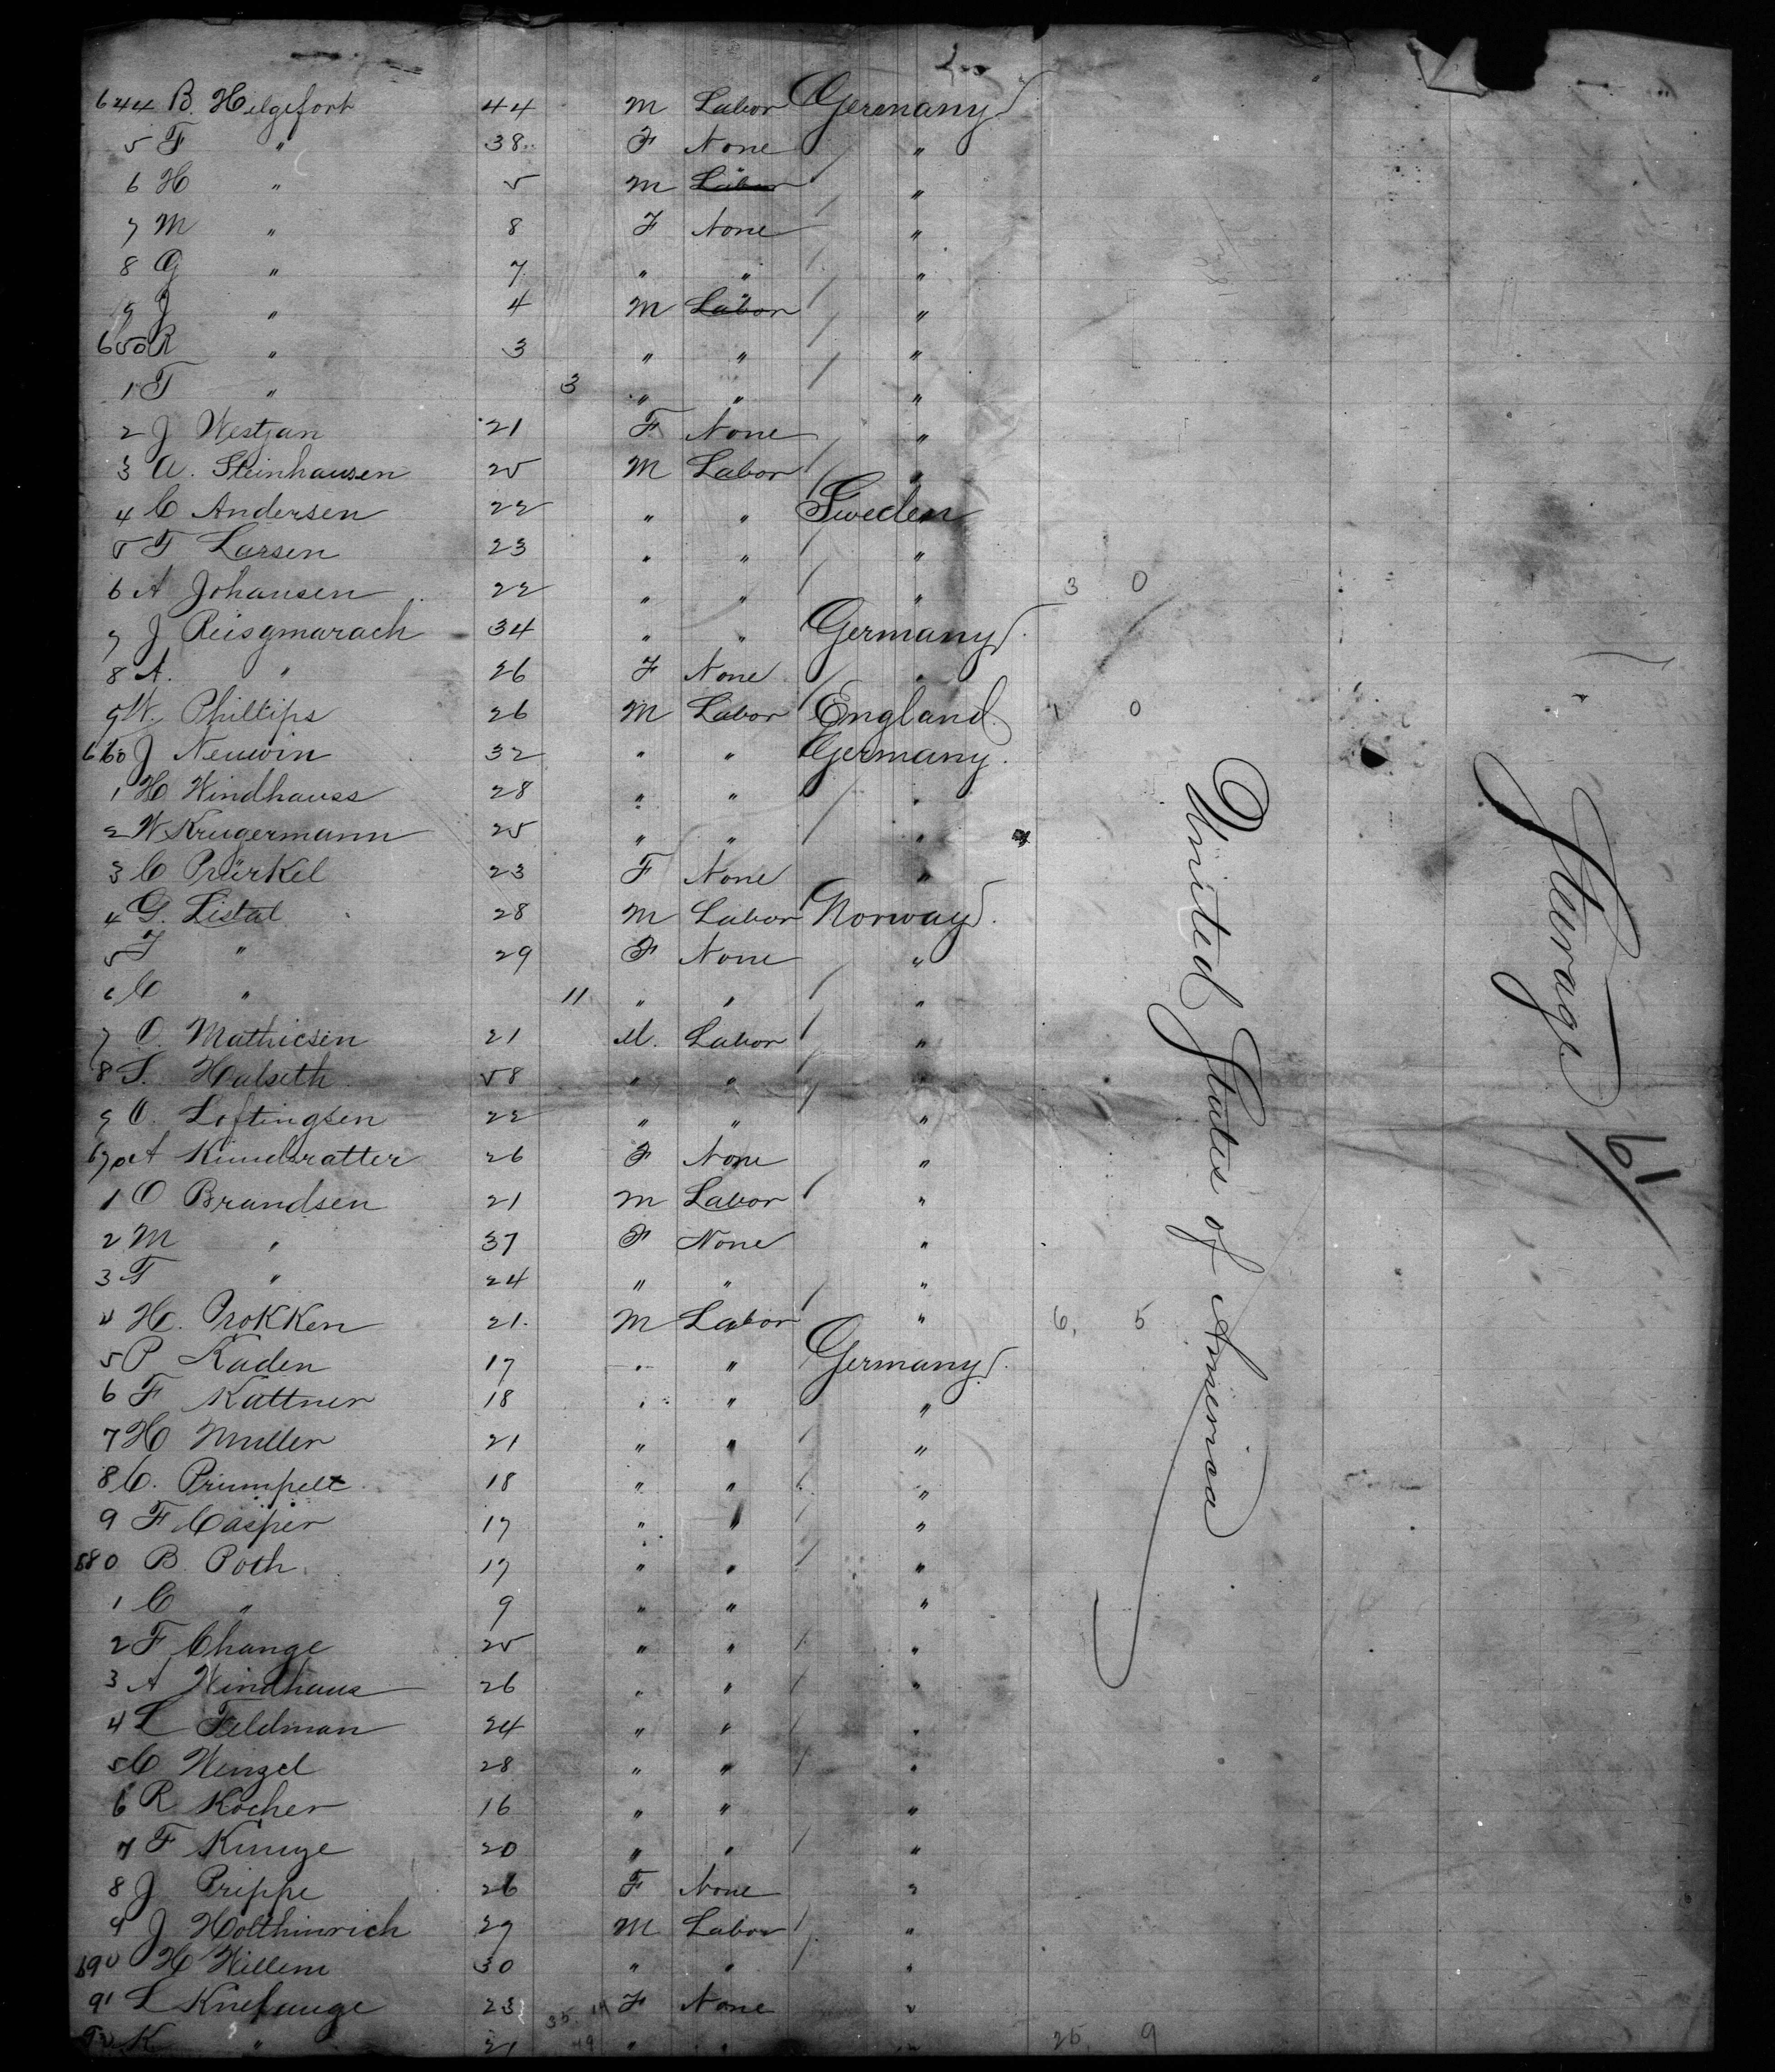 644 B. Helgefort 44 M Labor Germany
5 F " 38 F None "
6 H " 5 M Labor "
7 M " 8 F None "
8 G " 7 " " "
9 J " 4 M Labor "
650 R " 3 " " "
1 T " 3 " " "
2 J Westjan 21 F None "
3 A. Steinhausen 25 M Labor "
4 C Andersen 22 " " Sweden
5 T Larsen 23 " " "
6 A Johansen 22 " " " 3 0
7 J Reisgmarach 34 " " Germany
8 A. " 26 F None "
9 W. Phillips 26 M Labor England 1 0
660 J Neuwin 32 " " Germany
1 H Windhauss 28 " " "
2 W Krugermann 25 " " "
3 C Prürkel 23 F None "
4 G. Listal 28 M Labor Norway
5 J " 29 F None "
6 C " 11 " " "
7 O. Mathiesen 21 M. Labor "
8 S. Halseth 58 " " "
9 O. Loftingsen 22 " " "
670 A 26 F None "
1 O Brandsen 21 M Labor "
2 M " 37 F None "
3 T " 24 " " "
4 H. Prokken 21 M Labor " 6 5
5 P Kaden 17 " " Germany
6 F Kattner 18 " " "
7 H Muller 21 " " "
8 C. Prumpelt 18 " " "
9 F Casper 17 " " "
680 B Poth 17 " " "
1 C " 9 " " "
2 F Change 25 " " "
3 A Windhaus 26 " " "
4 L Feldman 24 " " "
5 C Wenzel 28 " " "
6 R Kocher 16 " " "
7 F Kunze 20 " " "
8 J Prippe 26 F None "
9 J Holthinrich 29 M Labor "
690 H Willem 30 " " "
91 L Knefauge 23 F None "
92 K " 21 " " " 25 9
United States of America
Steerage
61